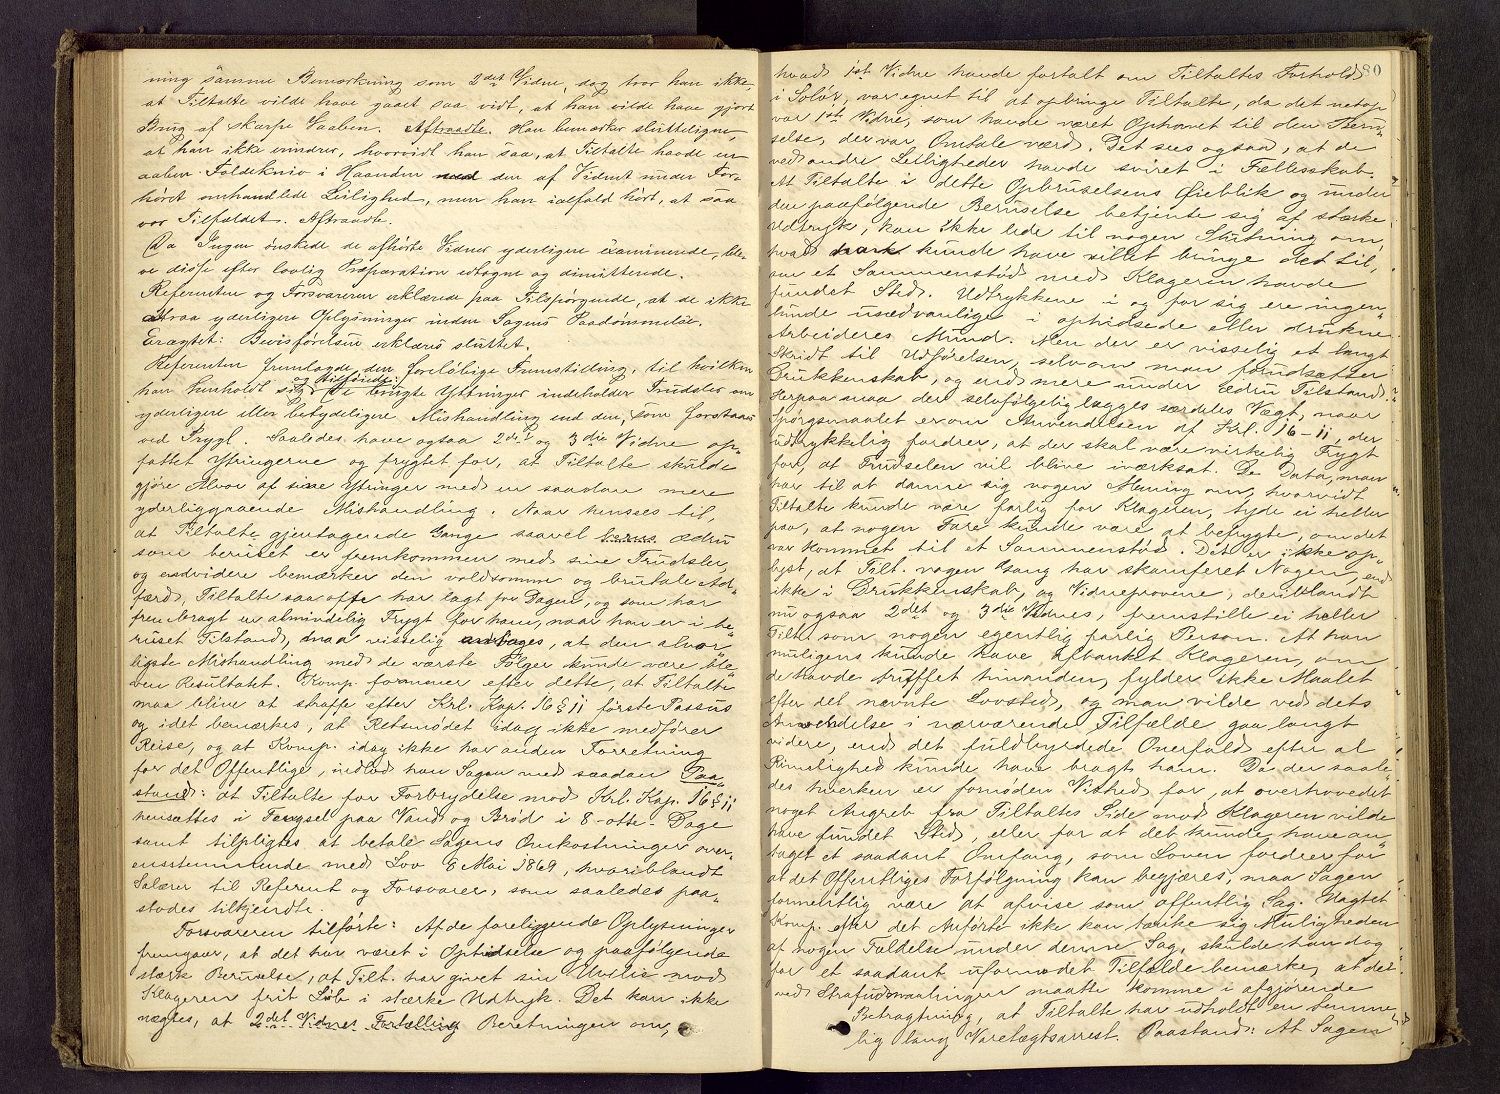 ning samme Bemærkning som 2det Vidne, dog tror han ikke,
at Tiltalte vilde have gaaet saa vidt, at han vilde have gjort
Brug af skarpe Vaaben. Aftraadte. Han bemærker slutteligen,
at han ikke erindrer, hvorvidt han saa, at Tiltalte havde en
aaben Foldekniv i Haanden ved den af Vidnet under For-
høret omhandlede Leilighed, men han ialfald hørt, at saa
var Tilfældet. Aftraadte.
Da Ingen ønskede de afhørte Vidner yderligere examinerede, ble-
ve disse efter lovlig Præparation edtagne og dimitterede.
Referenten og Forsvareren erklærede paa Tilspørgende, at de ikke
attraa yderligere Oplysninger inden Sagens Paadømmelse.
Eragtet: Bevisførelsen erklæres sluttet.
Referenten fremlagde den foreløbige Fremstilling, til hvilken
han henholdt sig og tilføiede: De brugte Yttringer indeholder Trudsler om
yderligere eller betydeligere Mishandling end den, som forstaaes
ved Prygl. Saaledes have ogsaa 2det og 3die Vidne op-
fattet Ytringerne og frygtet for, at Tiltalte skulde
gjøre Alvor af sine Ytringer med en saadan mere
yderliggaaende Mishandling. Naar hensees til,
at Tiltalte gjentagende Gange saavel ædru
som beruset er fremkommen med sine Trudsler,
og endvidere bemærker den voldsomme og brutale Ad-
færd, Tiltalte saa ofte har lagt for Dagen, og som har
frembragt en almindelig Frygt for ham, naar han er i be-
ruset Tilstand, maa visselig antages, at den alvor-
ligste Mishandling med de værste Følger kunde være ble-
ven Resultatet. Komp. formener efter dette, at Tiltalte
maa blive at straffe efter Krl. Kap. 16 § 11 første Passus
og idet bemærkes, at Retsmødet idag ikke medfører
Reise, og at Komp. idag ikke har anden Forretning
for det Offentlige, indlod han Sagen med saadan Paa-
stand: at Tiltalte for Forbrydelse mod Krl. Kap. 16 § 11
hensættes i Fængsel paa Vand og Brød i 8 - otte - Dage
samt tilpligtes at betale Sagens Omkostninger over-
ensstemmende med Lov 6 Mai 1869, hvoriblandt
Salærer til Referent og Forsvarer, som saaledes paa-
stodes tilkjendte.
Forsvareren tilførte: Af de foreliggende Oplysninger
fremgaar, at det har været i Ophidselse og paafølgende
stærk Beruselse, at Tilt. har givet sin Uvilie mod
Klageren frit Løb i stærke Udtryk. Det kan ikke
nægtes, at 2det Vidnes Fortælling Beretningen om,
80
hvad 1st Vidne havde fortalt om Tiltaltes Forhold
i Solør, var egnet til at opbringe Tiltalte, da det netop
var 1st Vidne, som havde været Ophavet til den Beru-
selse, der var Omtale værd. Det sees ogsaa, at de
ved andre Leiligheder havde sviret i Fællesskab.
At Tiltalte i dette Opbruselsens Øieblik og under
den paafølgende Beruselse betjente sig af stærke
Udtryk, kan ikke lede til nogen Slutning om,
hvad kunde have villet bringe det til,
om et Sammenstød med Klageren havde
fundet Sted. Udtrykkene i og for sig ere ingen-
lunde usædvanlige i ophidsede eller drukne
Arbeideres Mund. Men der er visselig et langt
Skridt til Udførelsen, selv om man forudsætter
Drukkenskab, og end mere under ædru Tilstand.
Herpaa maa der selvfølgelig lægges særdeles Vægt, naar
Spørgsmaalet er om Anvendelsen af Krl. 16 - 11, der
udtrykkelig fordrer, at der skal være virkelig Frygt
for, at Trudselen vil blive iværksat. De Data, man
har til at danne sig nogen Mening om, hvorvidt
Tiltalte kunde være farlig for Klageren, tyde ei heller
paa, at nogen Fare kunde være at befrygte, om det
var kommet til et Sammenstød. Det er ikke op-
lyst, at Tilt. nogen Gang har skamferet Nogen, end
ikke i Drukkenskab, og Vidneprovene, deriblandt
nu ogsaa 2det og 3die Vidnes, fremstille ei heller
Tilt. som nogen egentlig farlig Person. At han
muligens kunde have afbanket Klageren, om
de havde truffet hinanden, fylder ikke Maalet
efter det nævnte Lovsted, og man vilde ved dets
Anvendelse i nærværende Tilfælde gaa langt
videre, end det fuldbyrdede Overfald efter al
Rimelighed kunde have bragt ham. Da der saale-
des hverken er fornøden Vished for, at overhovedet
noget Angreb fra Tiltaltes Side mod Klageren vilde
have fundet Sted, eller for at det kunde have an-
taget et saadant Omfang, som Loven fordrer for
at det Offentliges Forfølgning kan begjæres, maa Sagen
formentlig være at afvise som offentlig Sag. Uagtet
Komp. efter det Anførte ikke kan tænke sig Muligheden
af nogen Fældelse under denne Sag, skulde han dog
for et saadant uformodet Tilfælde bemærke, at det
ved Strafudmaalingen maatte komme i afgjørende
Betragtning, at Tiltalte har udholdt en temme-
lig lang Varetægtsarrest. Paastand: At Sagen